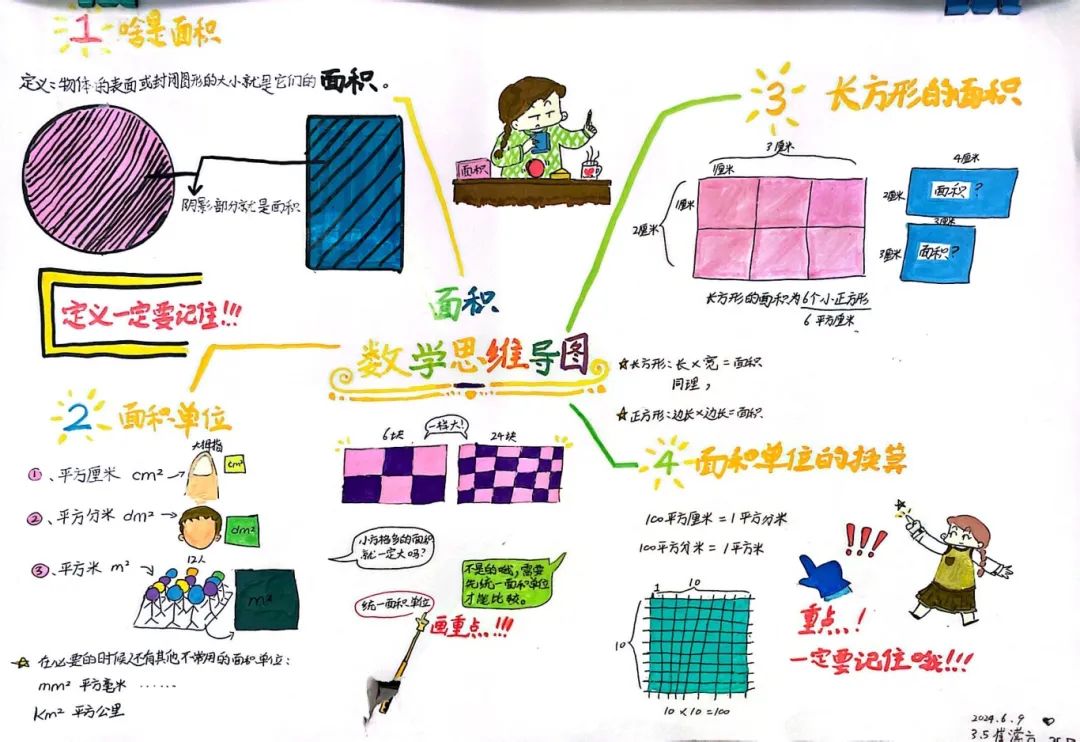 1 啥是面积
定义:物体的表面或封闭图形的大小就是它们的面积。
阴影部分就是面积
定义一定要记住!!!
面积
面积
数学思维导图
2 面积单位
大拇指
①、平方厘米 cm²
cm²
②、平方分米 dm²
dm²
12人
③、平方米 m²
m²
☆ 在必要的时候还有其他不常用的面积单位:
mm² 平方毫米 ……
km² 平方公里
6块
一样大!
24块
小方格多的面积
就一定大吗?
不是的哦,需要
先统一面积单位
才能比较。
统一面积单位
画重点!!!
3 长方形的面积
3厘米
1厘米
1厘米
2厘米
4厘米
2厘米
面积?
3厘米
3厘米
面积?
长方形的面积为6个小正方形
6平方厘米
☆长方形:长×宽=面积
同理,
☆正方形:边长×边长=面积
4 面积单位的换算
100平方厘米=1平方分米
100平方分米=1平方米
1
10
10
10×10=100
!!!
重点!
一定要记住哦!!!
2024.6.9
3.5